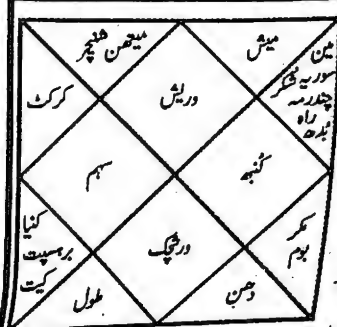 میتھن شنیچر
میش
مین
سوریہ شکر
چندرمہ
راہ
بدھ
کرکٹ
وریش
سہم
کنبھ
کنیا
برہسپت
کیت
ورشچک
مکر
بوم
طول
دھن